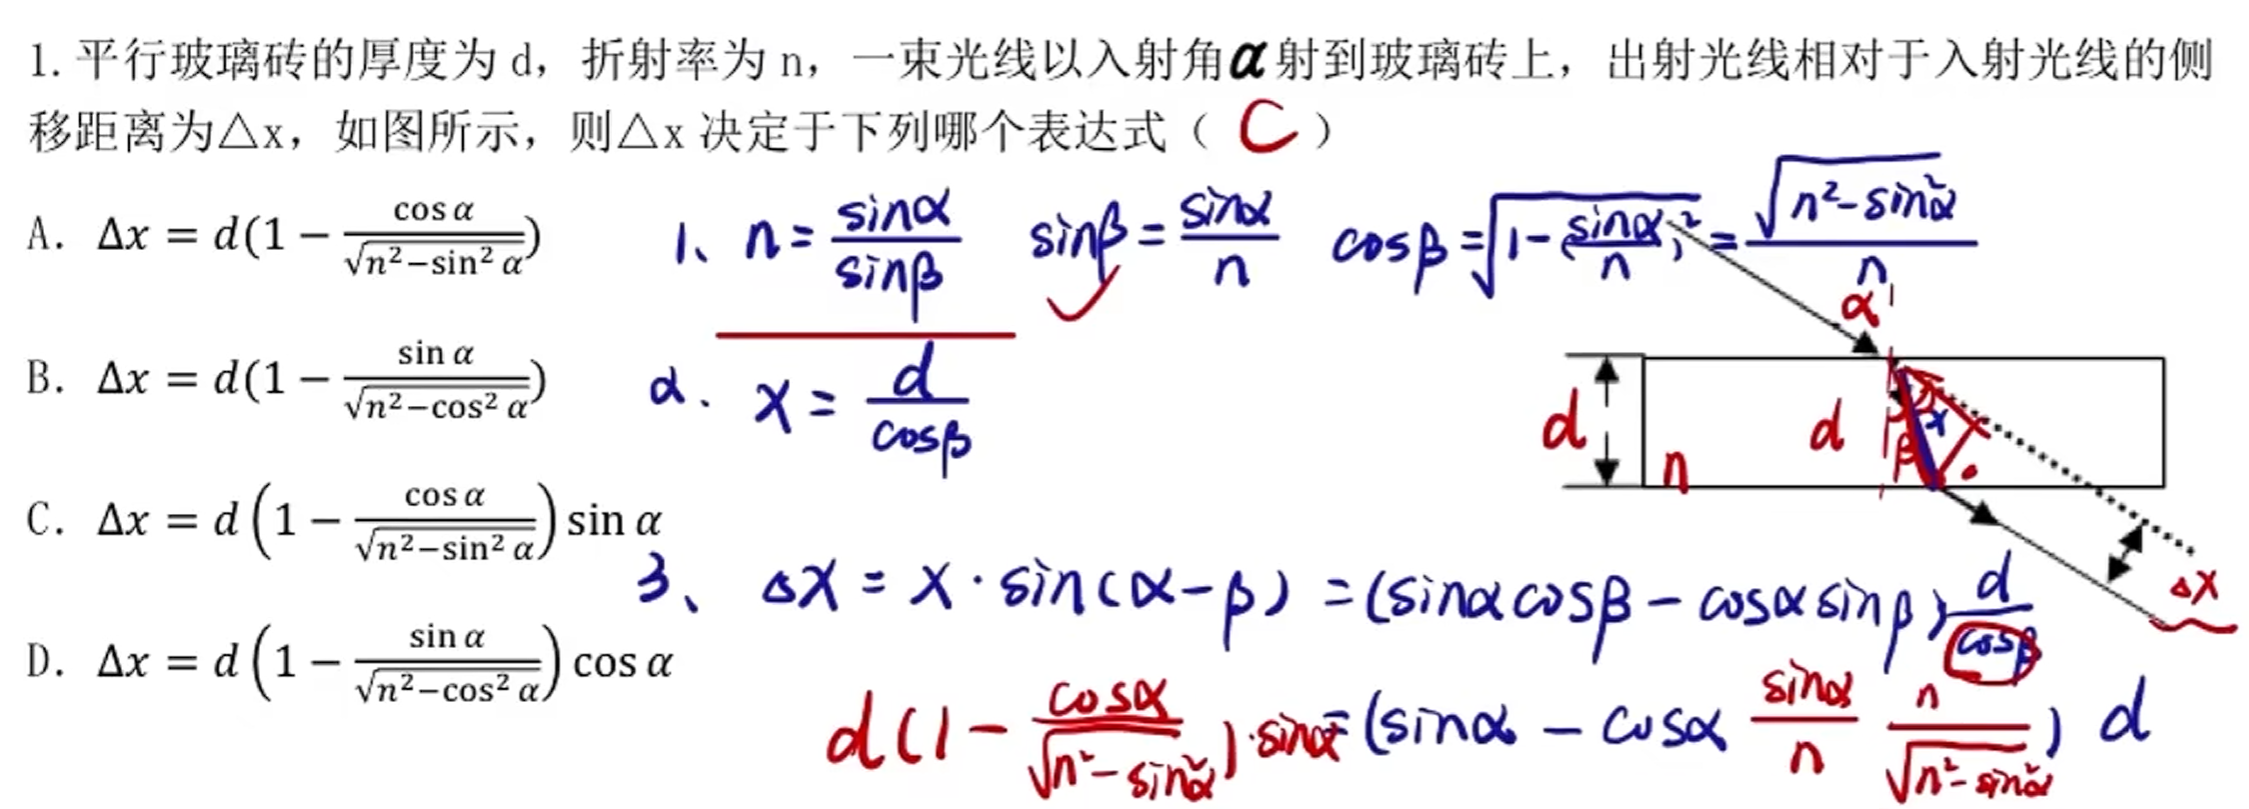 1. 平行玻璃砖的厚度为 d，折射率为 n，一束光线以入射角α射到玻璃砖上，出射光线相对于入射光线的侧
移距离为△x，如图所示，则△x 决定于下列哪个表达式（ C ）
A. Δx = d(1 − cos α/√(n²−sin² α))
B. Δx = d(1 − sin α/√(n²−cos² α))
C. Δx = d(1 − cos α/√(n²−sin² α)) sin α
D. Δx = d(1 − sin α/√(n²−cos² α)) cos α
1、 n = sinα/sinβ sinβ = sinα/n cosβ = √(1−(sinα/n)²) = √(n²−sin²α)/n
2、 x = d/cosβ
3、 △x = x · sin(α−β) = (sinα cosβ − cosα sinβ) d/cosβ
d(1 − cosα/√(n²−sin²α)) · sinα = (sinα − cosα sinα/n n/√(n²−sin²α)) d
α
d
n
d
β
x
△x